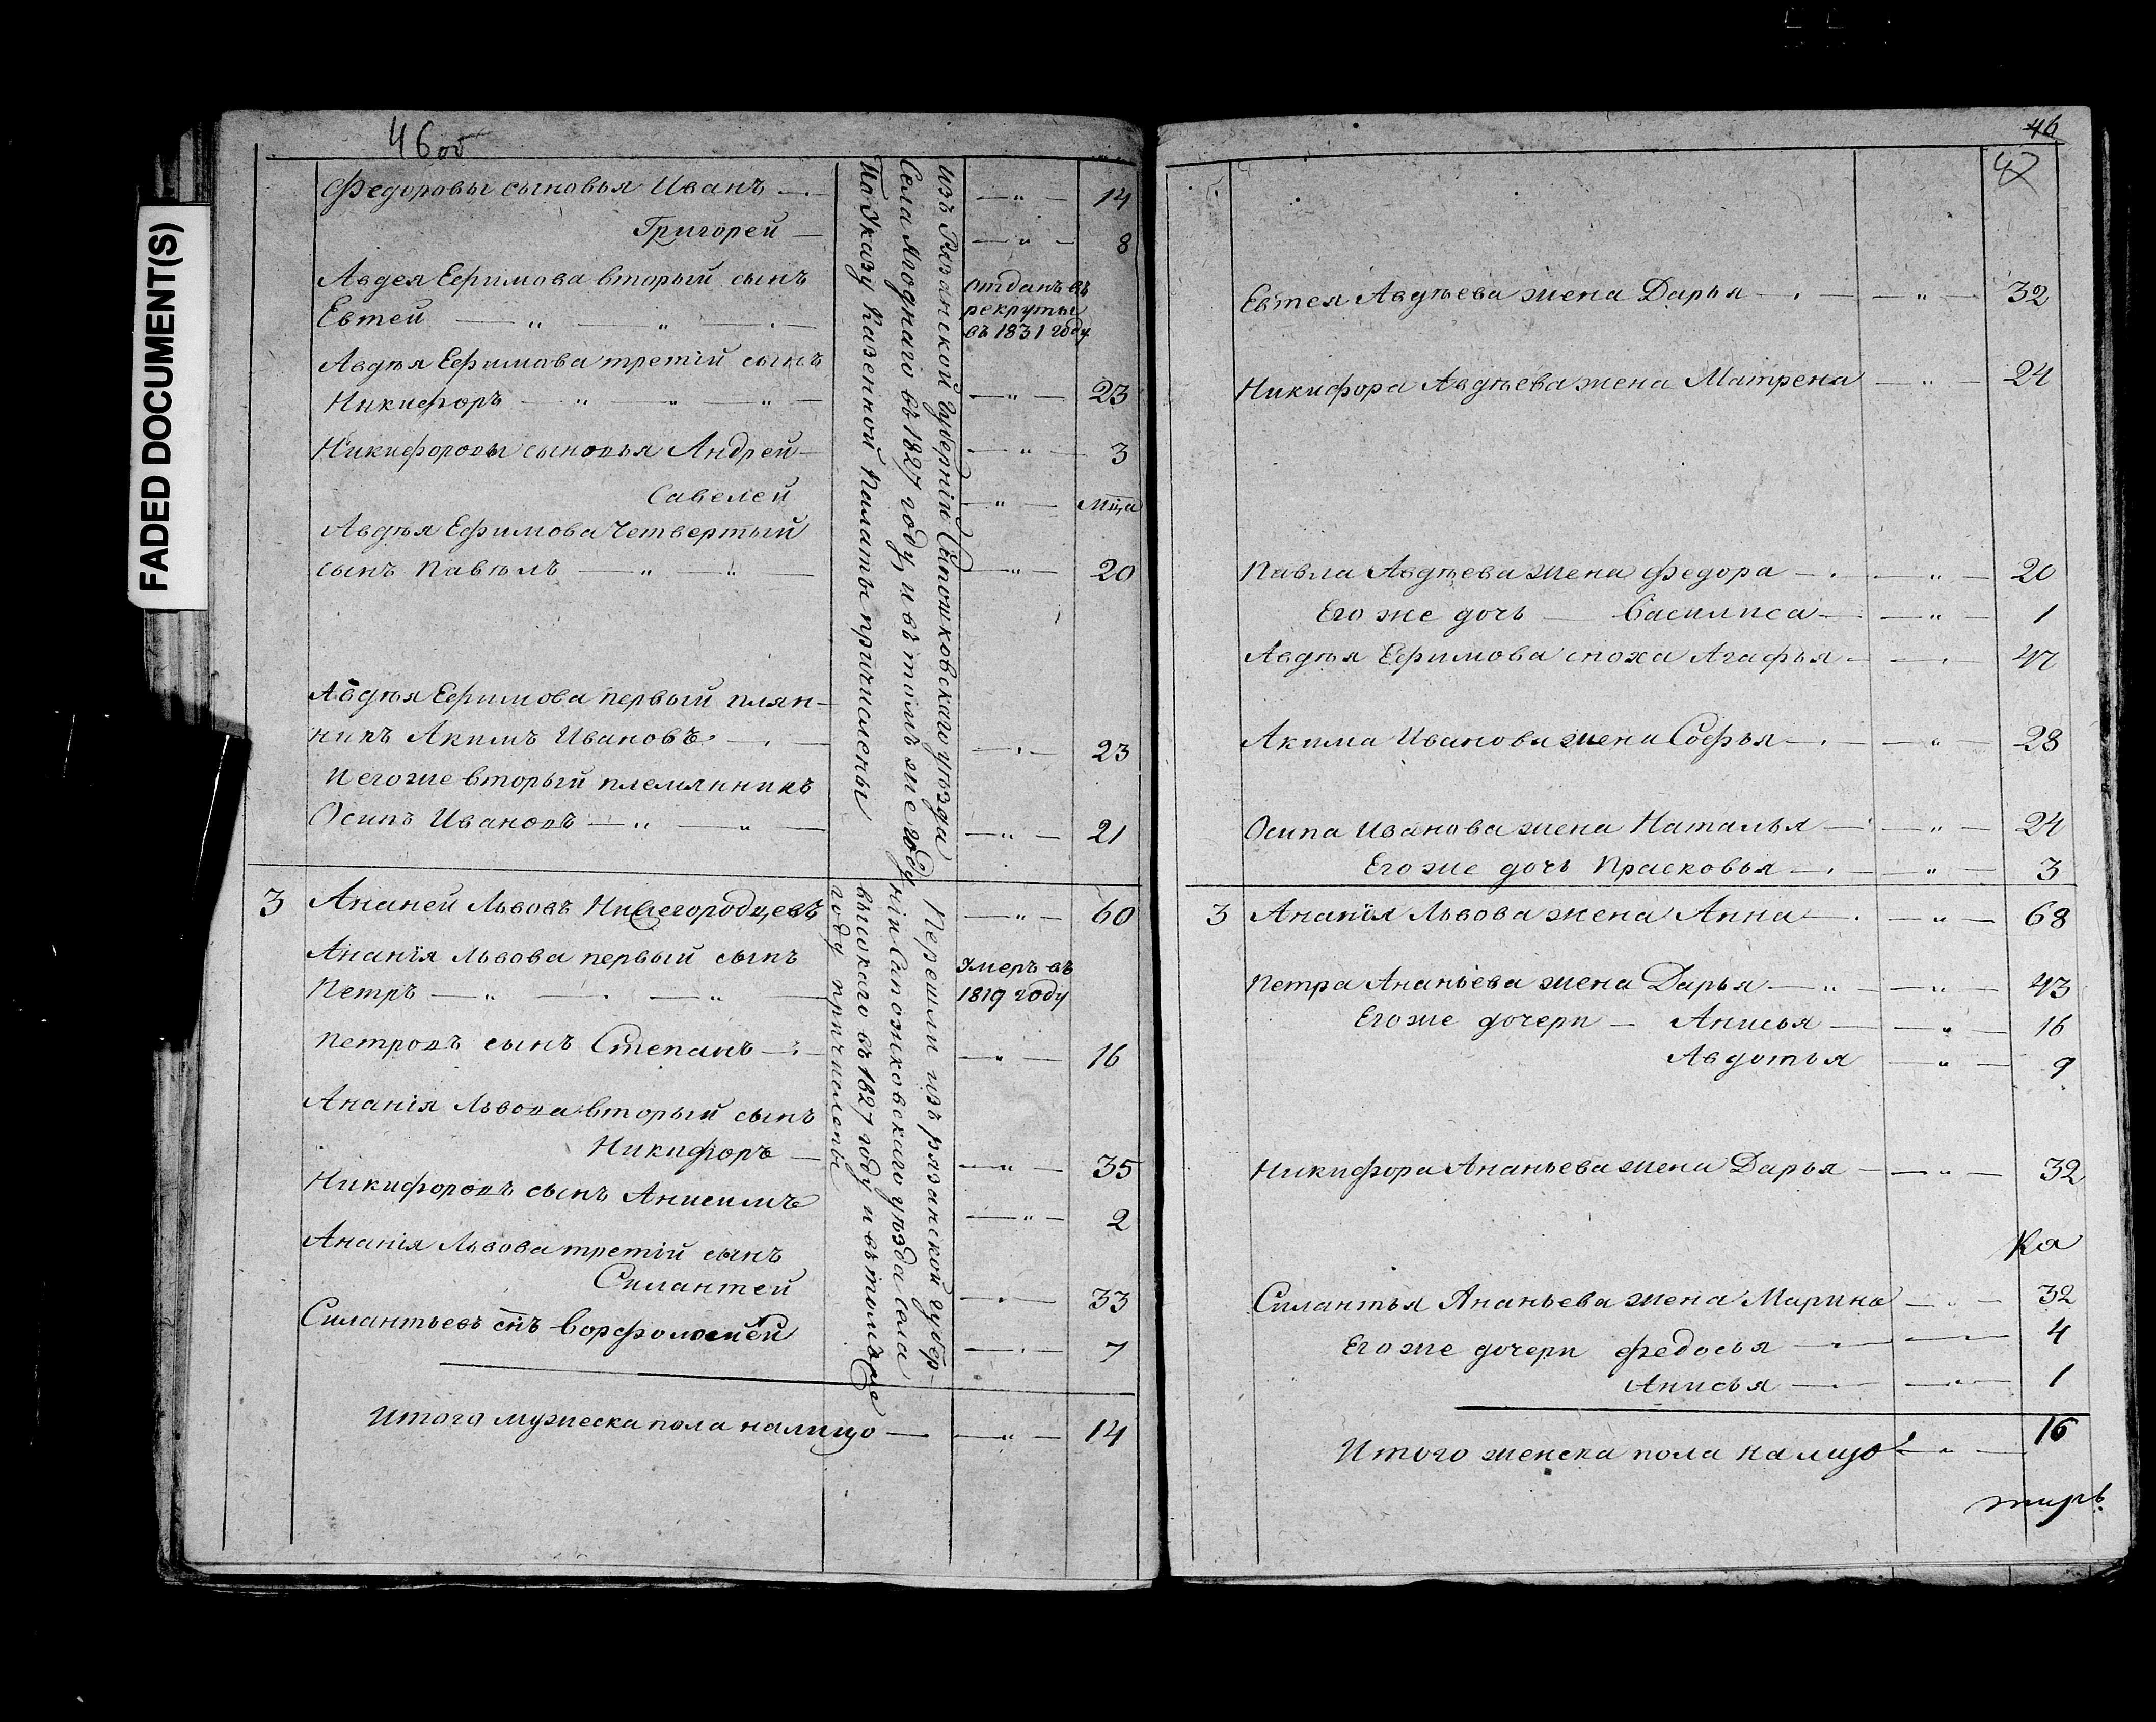 FADED DOCUMENT(S)
46 об
Федоровы сыновья Иванъ — " — 14
Григорей — " — 8
Авдея Ефимова вторый сынъ
Евтей — " — " —
отданъ въ
рекруты
въ 1831 году
Авдѣя Ефимова третій сынъ
Никифоръ — " — " — " — " — 23
Никифоровы сыновья Андрей — " — 3
Савелей — " — мца
Авдѣя Ефимова четвертый
сынъ Павѣлъ — " — " — " — 20
Авдѣя Ефимова первый плян-
никъ Акимъ Ивановъ — 23
И егоже вторый племянникъ
Осипъ Ивановъ — " — " — " — 21
изъ Рязанской губерніи Сапошковскаго уѣзда
Села Ягоднаго въ 1827 году, и въ томъ же году
По Указу Казенной Палаты причислены
3 Ананей Львовъ Нижегородцевъ — " — 60
Ананія Львова первый сынъ
Петръ — " — " —
Умеръ въ
1819 году
Петровъ сынъ Степанъ — " — 16
Ананія Львова вторый сынъ
Никифоръ — " — 35
Никифоровъ сынъ Анисимъ — " — 2
Ананія Львова третій сынъ
Силантей — " — 33
Силантьевъ снъ Ворфоломей — 7
Перешли изъ рязанской губер-
ніи Сапожковскаго уѣзда села
въ 1827 году и въ томже
году причислены
Итого мужеска пола налицо — " — 14
46
47
Евтея Авдѣева жена Дарья — " — 32
Никифора Авдѣева жена Матрена — " — 24
Павла Авдѣева жена Федора — " — 20
Его же дочь — Василиса — " — 1
Авдѣя Ефимова сноха Агафья — 47
Акима Иванова жена Софья — " — 28
Осипа Иванова жена Наталья — " — 24
Его же дочь Прасковья — " — 3
3 Ананія Львова жена Анна — " — 68
Петра Ананьева жена Дарья — " — " — 43
Его же дочери — Анисья — " — 16
Авдотья — " — 9
Никифора Ананьева жена Дарья — " — 32
Ка
Силантья Ананьева жена Марина — " — 32
Его же дочери Федосья — 4
Анисья — " — 1
Итого женска пола на лицо — " — 16